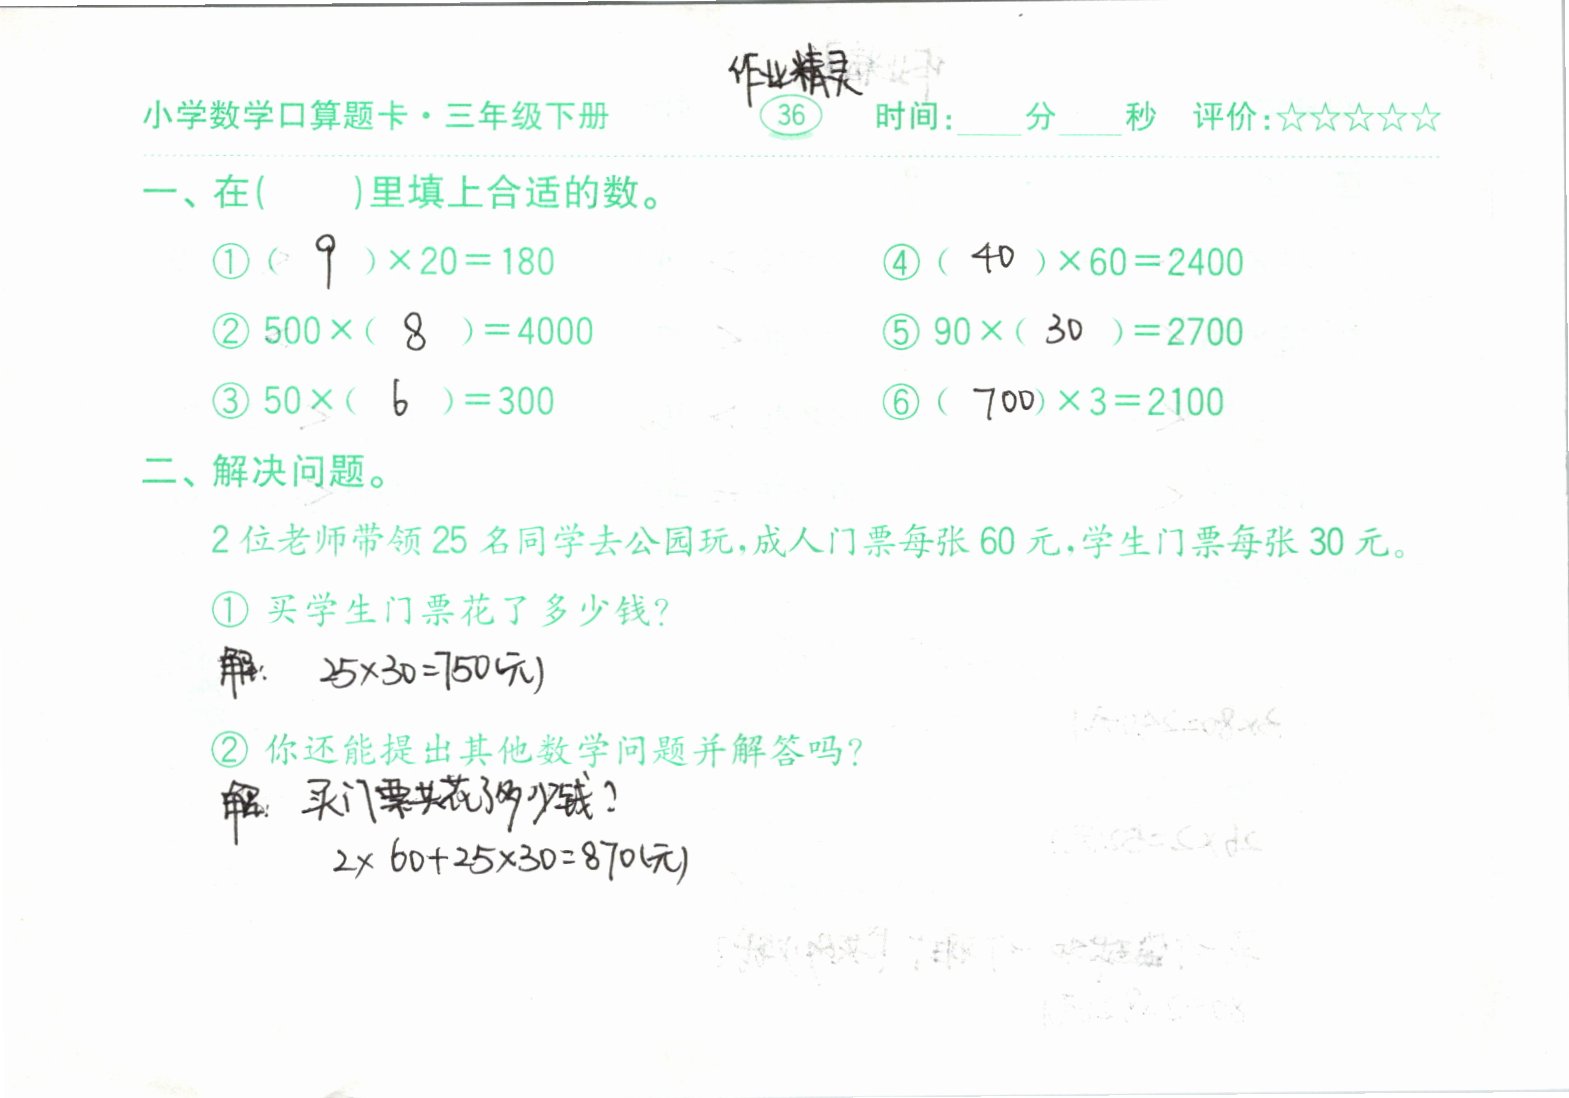 作业精灵
小学数学口算题卡·三年级下册 36 时间:____分____秒 评价:☆☆☆☆☆
一、在(  )里填上合适的数。
①( 9 )×20=180 ④( 40 )×60=2400
②500×( 8 )=4000 ⑤90×( 30 )=2700
③50×( 6 )=300 ⑥( 700 )×3=2100
二、解决问题。
2位老师带领25名同学去公园玩,成人门票每张60元,学生门票每张30元。
①买学生门票花了多少钱?
解: 25×30=750(元)
②你还能提出其他数学问题并解答吗?
解: 买门票共花了多少钱?
2×60+25×30=870(元)